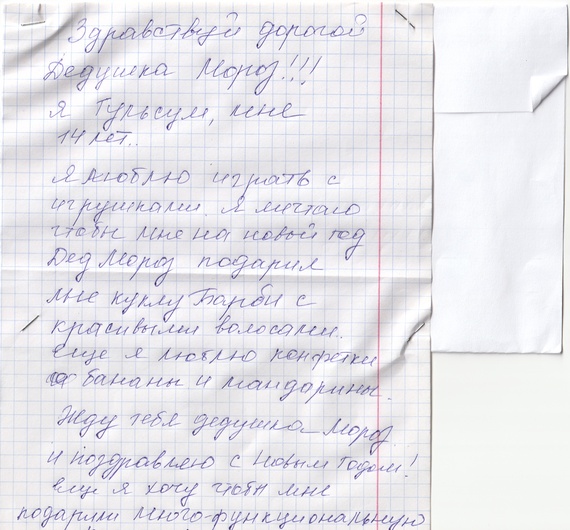 Здравствуй дорогой
Дедушка Мороз!!!
Я Гульсум, мне
14 лет..
Я люблю играть с
игрушками. Я мечтаю
чтобы мне на новый год
Дед Мороз подарил
мне куклу Барби с
красивыми волосами.
Еще я люблю конфетки
бананы и мандарины.
Жду тебя дедушка Мороз
и поздравляю с Новым Годом!
Еще я хочу чтобы мне
подарили много-функциональную